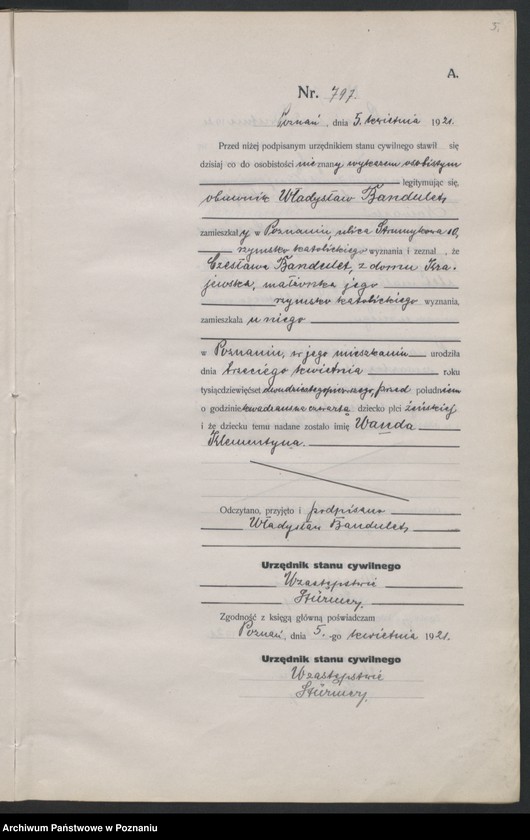 5.
A.
Nr. 797.
Poznań, dnia 5. kwietnia 1921.
Przed niżej podpisanym urzędnikiem stanu cywilnego stawił się
dzisiaj co do osobistości nieznany wykazem osobistym
legitymując się,
obuwnik Władysław Bandulets
zamieszkały w Poznaniu, ulica Strumykowa 10,
rzymsko katolickiego wyznania i zeznał, że
Czesława Bandulet, z domu Kra-
jewska, małżonka jego
rzymsko katolickiego wyznania,
zamieszkała u niego
w Poznaniu, w jego mieszkaniu urodziła
dnia trzeciego kwietnia roku
tysiącdziewięćset dwudziestego pierwszego, przed południem
o godzinie kwadrans czwartą dziecko płci żeńskiej
i że dziecku temu nadane zostało imię Wanda
Klementyna.
Odczytano, przyjęto i podpisano
Władysław Bandulets
Urzędnik stanu cywilnego
W zastępstwie
Stürmer.
Zgodność z księgą główną poświadczam
Poznań, dnia 5.-go kwietnia 1921.
Urzędnik stanu cywilnego
W zastępstwie
Stürmer.
Archiwum Państwowe w Poznaniu